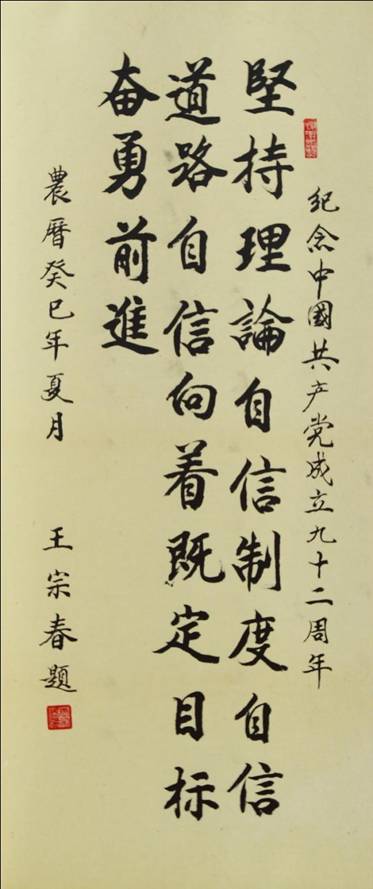 纪念中國共产党成立九十二周年
堅持理論自信制度自信
道路自信向着既定目标
奋勇前進
農曆癸巳年夏月 王宗春題